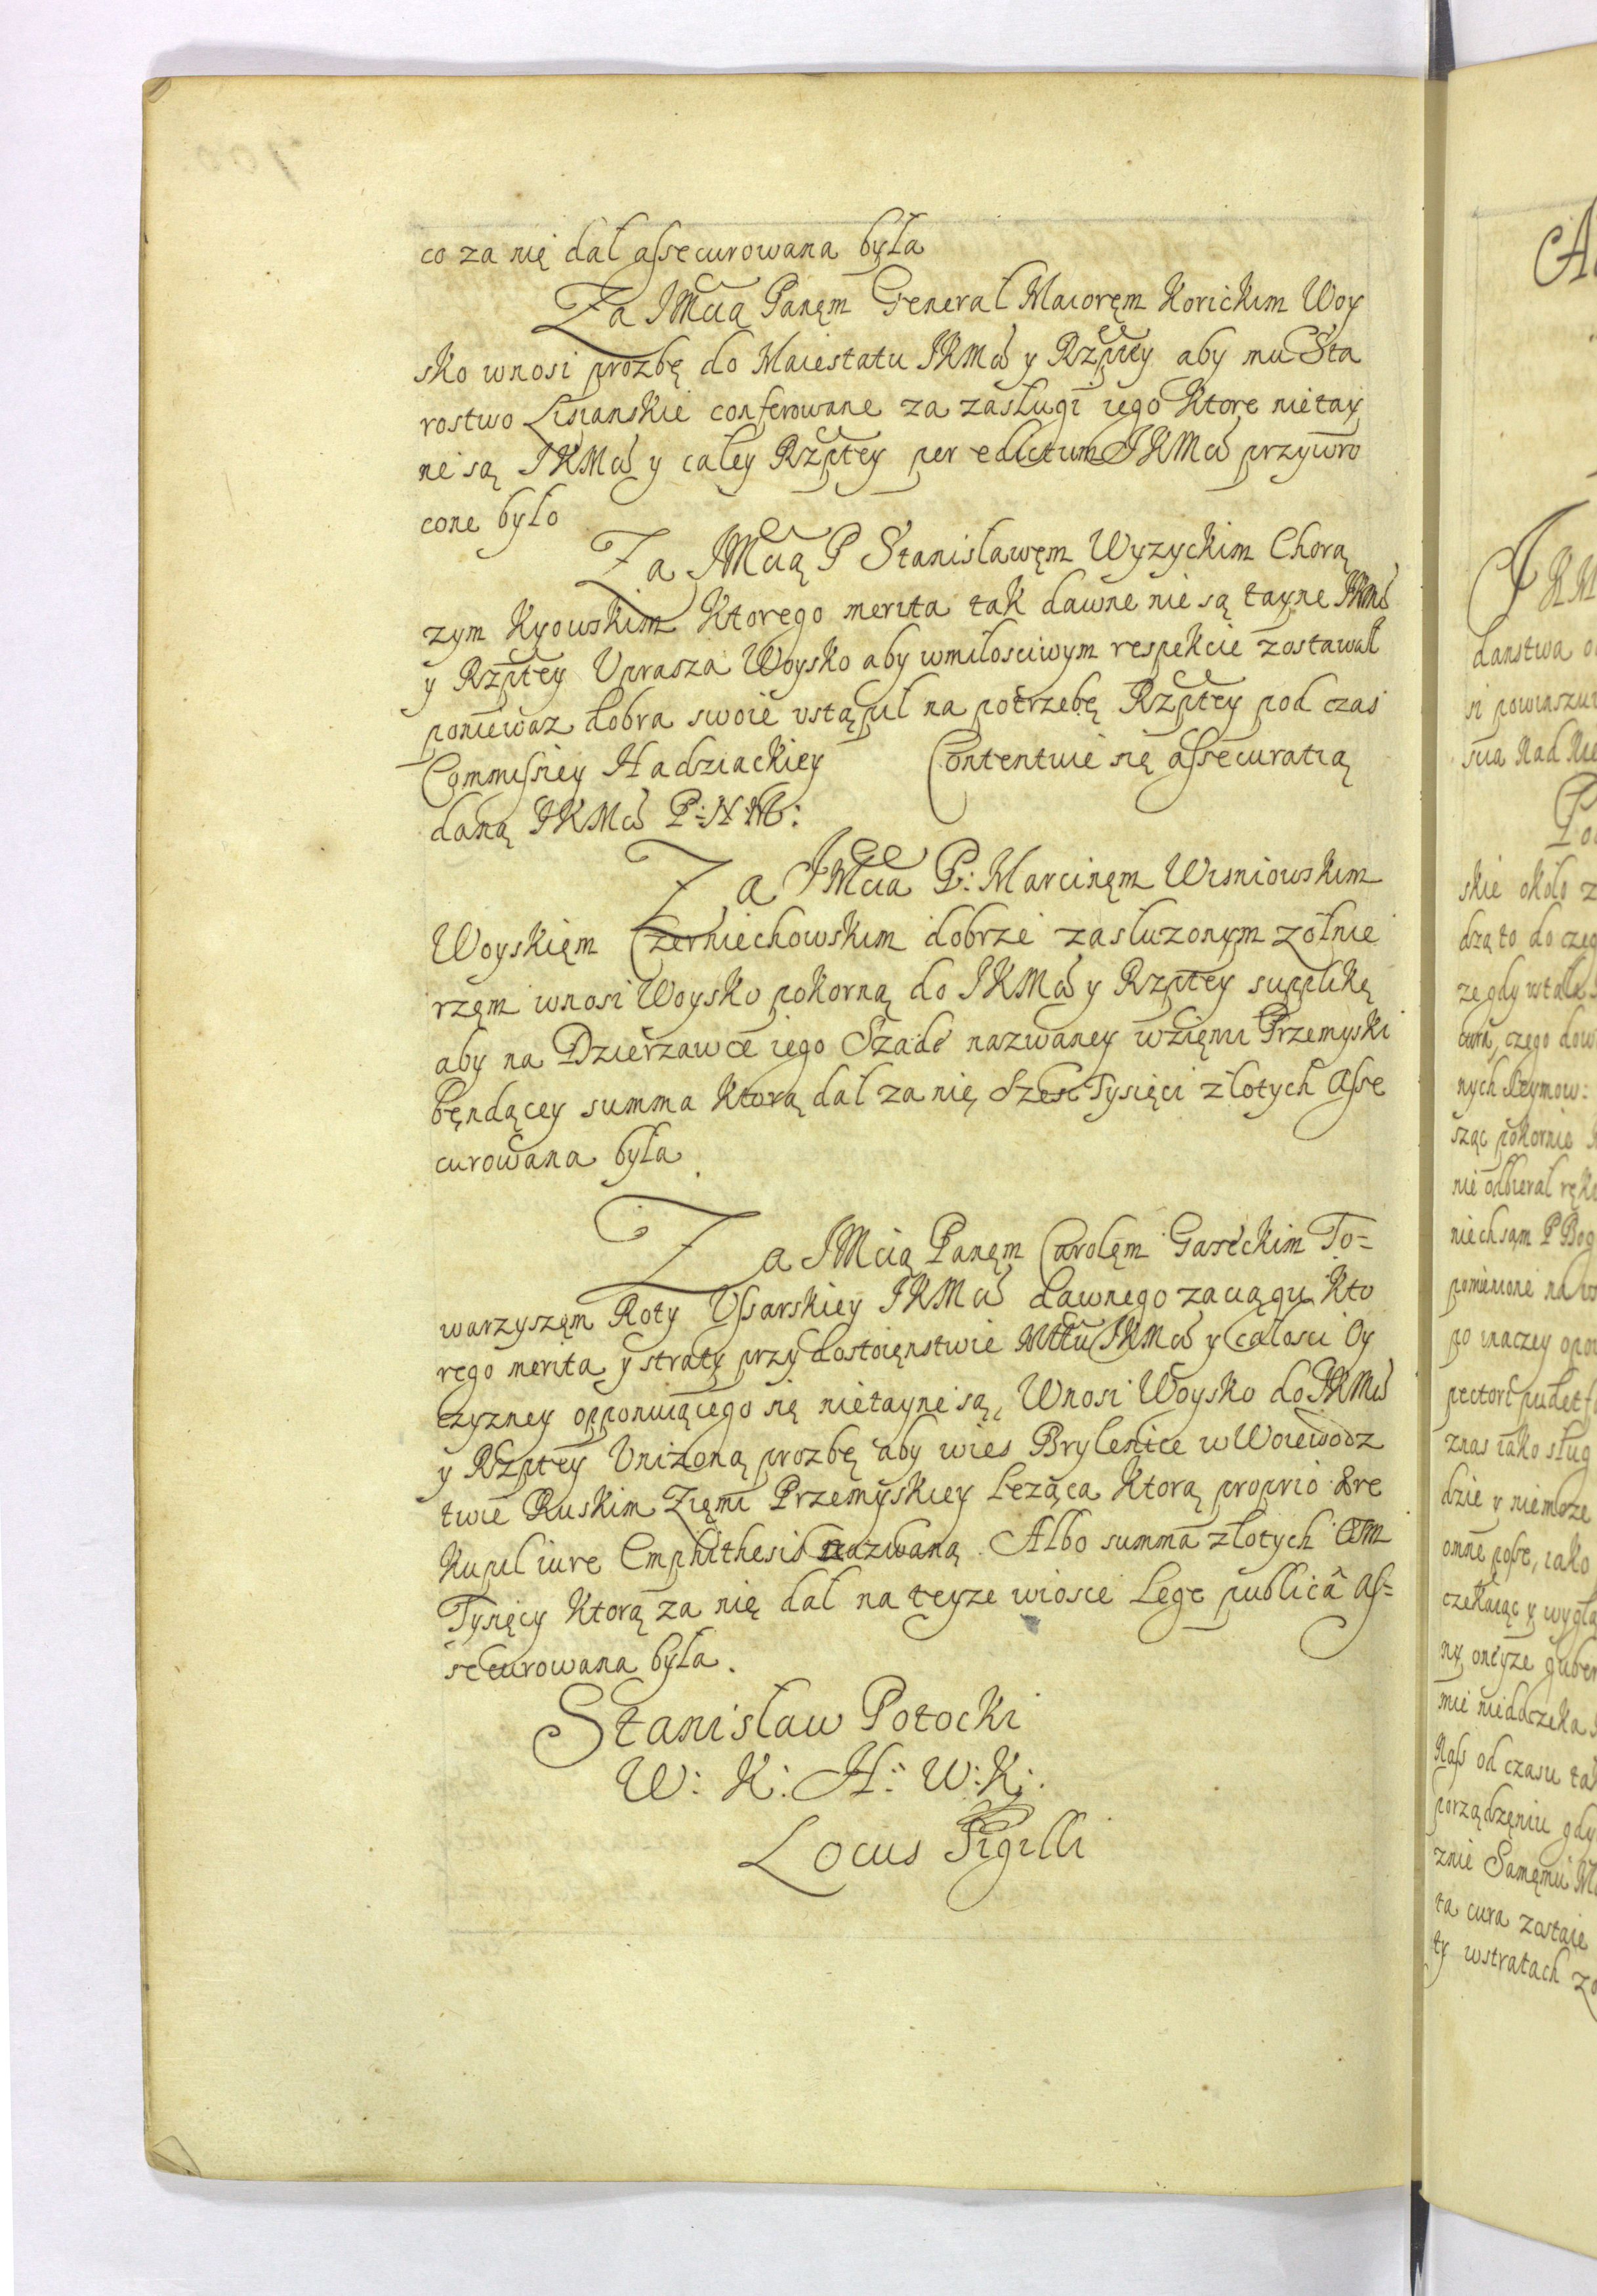 co za nię dał assecurowana była
Za JMcią Panęm General Maioręm Korickim Woy
sko wnosi prozbę do Maiestatu JKMci y Rzptey aby mu Sta
rostwo Lisianskie conferowane za zasługi iego Ktore nietay
ne są JKMci y całey Rzptey per edictum JKMci przywro
cone było
Za JMcią P Stanisławęm Wyzyckim Chorą
zym Kyowskim Ktorego merita tak dawne nie są tayne JKMci
y Rzptey Vprasza Woysko aby wmiłosciwym respekcie zostawał
poniewaz dobra swoie vstąpił na potrzebę Rzptey pod czas
Commissiey Hadziackiey Contentuie się assecuratią
daną JKMci P: N: M:
Za JMcia P: Marcinęm Wisniowskim
Woyskięm Czerniechowskim dobrze zasłuzonym zołnie
rzęm wnosi Woysko pokorną do JKMci y Rzptey supplikę
aby na Dzierzawce iego Szade nazwaney wzięmi Przemyski
będącey summa Ktorą dał za nię Szesc Tysięci złotych Asse
curowana była
Za JMcią Panęm Carolęm Gareckim To=
warzyszęm Roty Vssarskiey JKMci dawnego zaciągu Kto
rego merita y straty przy dostoięnstwie Mttu JKMci y całosci Oy
czyzney opponuiącego się nietayne są, Wnosi Woysko do JKMci
y Rzptey Vnizoną prozbę aby wies Brylenice w Woiewodz
twie Ruskim Zięmi Przemyskiey Leząca Ktorą proprio ære
Kupił iure Emphithesis nazwaną. Albo summa złotych Osm
Tysięcy Ktorą za nię dał na teyze wiosce Lege publicâ As=
securowana była.
Stanisław Potocki
W: K: H: W: K:
Locus Sigilli
JKM
danstwa
si powinszu
skie około z
dzą to do czeg
ze gdy wstałe
czego dow
nych Seymow:
sząc pokornie
nie odbierał ręk
niech sąm P Bog
pomienione na
po inaczey opo
pectore pudet
znas iako sług
dzie y niemoze
omne posse, iako
czekaiąc y wygła
ny, oneyze guber
mie niedoczeka
Nass od czasu ta
porządzęniu gdy
znie Samęmu
ta cura zostaie
ty wstratach